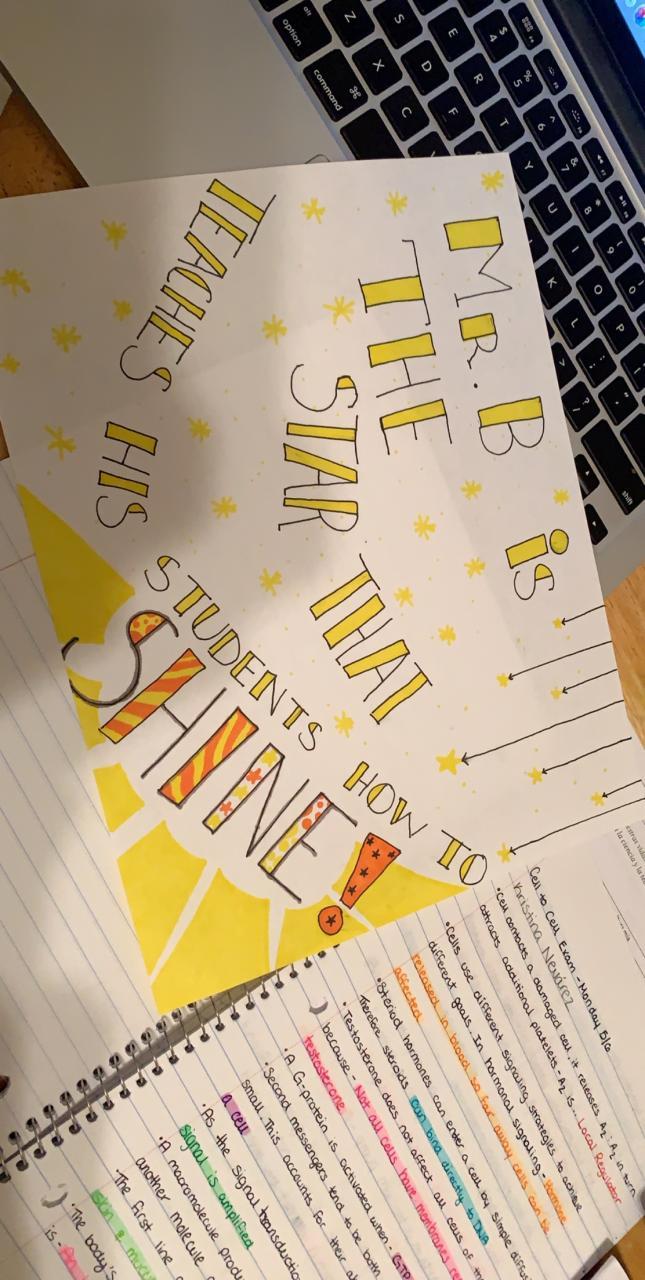 MR. B is
THE
STAR THAT
TEACHES HIS
STUDENTS HOW TO
SHINE!
Cell to Cell Exam - Monday 5/6
Kristina Nevárez
•Cell contacts a damaged cell, it releases A₂: A₂ in turn
attracts additional platelets. A₂ is... Local Regulator
•Cells use different signaling strategies to achieve
different goals. In hormonal signaling - Hormone
released in blood so far away cells can be
affected
•Steriod hormones can enter a cell by simple
Therefore steroids can bind directly to DNA
•Testosterone does not affect all cells of
because - Not all cells have membranes
testosterone
•A G-protein is activated when - GTP
•Second messengers tend to be both
small. This accounts for their
a cell
•As the signal transduction
signal is amplified
•A macromolecule
another molecule
•The first line
skin &
•The body's
is -
alt
option
command
⌘
Z
X
C
S
D
F
E
R
T
Y
U
I
O
P
K
L
$
4
%
5
^
6
&
7
*
8
9
shift